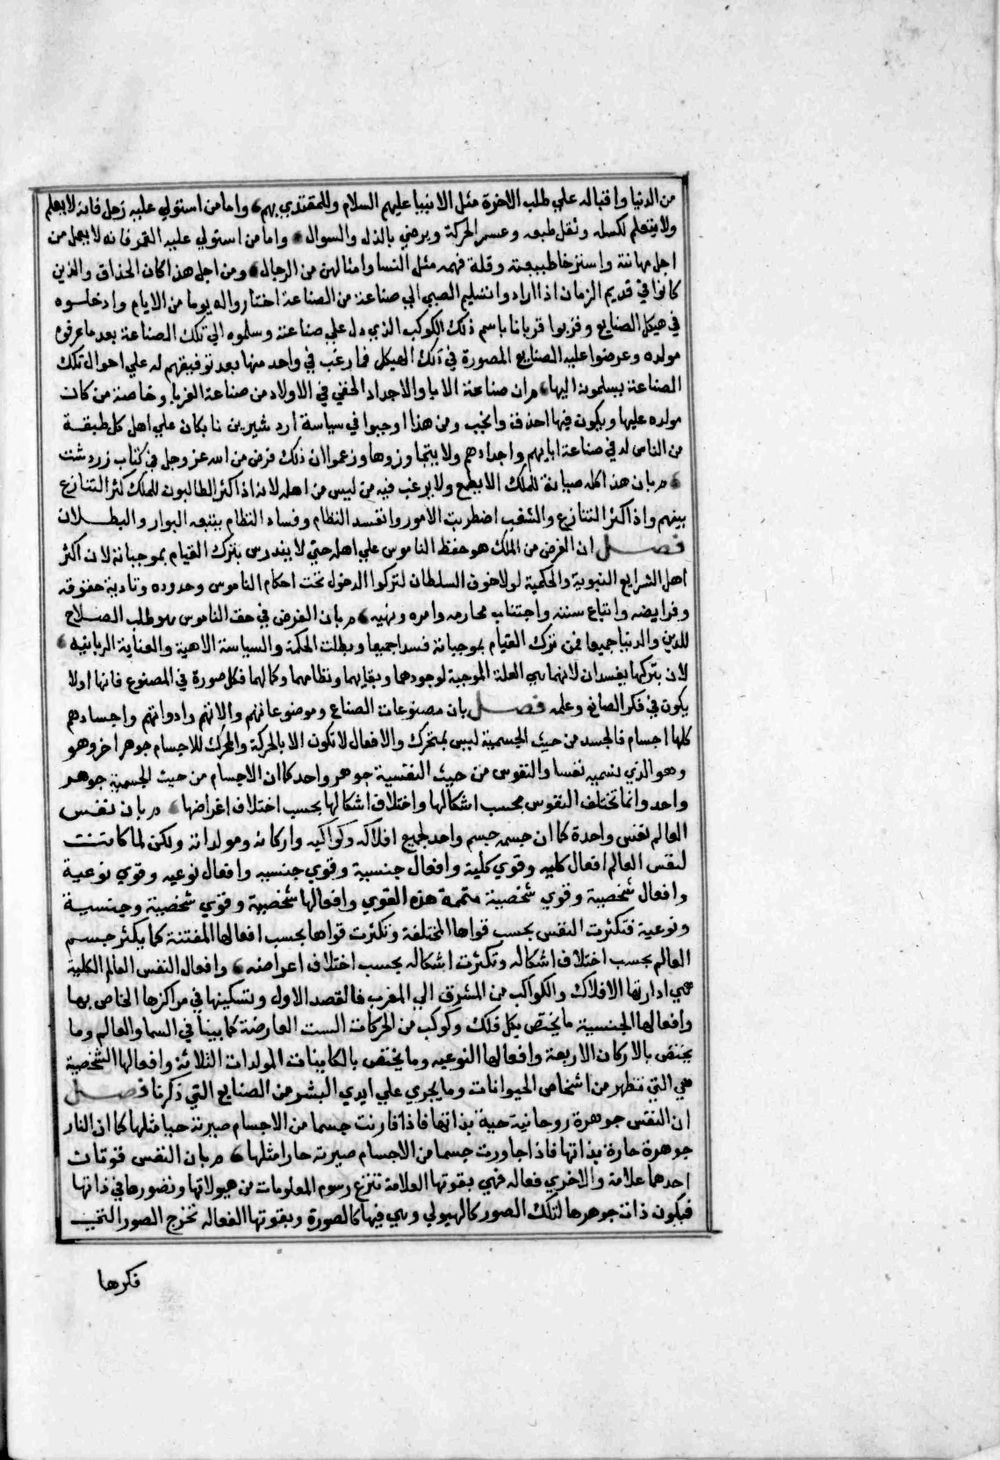 من الدنيا واقباله علي طلب الاخرة مثل الانبيا عليهم السلام وللمقتدي بهم، واما من استولي عليه زحل فانه لا يعلم
ولا يتعلم لكسله وثقل طبعه وعسر الحركة ويرضي بالذل والسوال، واما من استولي عليه القمر فانه لا يعمل من
اجل مهانتة واسترخا طبيعته وقلة فهمه مثل النسا وامثالهن من الرجال، ومن اجل هذا كان الحذاق والذين
كانوا في قديم الزمان اذا ارادوا تسليم الصبي الي صناعة من الصناعة اختاروا له يوما من الايام وادخلوه
في هيكل الصنايع وقربوا قربانا باسم ذلك الكوكب الذي دل علي صناعته وسلموه الي تلك الصناعة بعد ما عرفوه
مولده وعرضوا عليه الصنايع المصورة في ذلك الهيكل فما رغب في واحد منها بعد توفيقهم له علي احوال تلك
الصناعة يسلمونه اليها، م ان صناعة الابا والاجداد الخفي في الاولاد من صناعة الغربا وخاصة من كان
مولده عليها ويكون فيها احذق وانجب ومن هذا اوجبوا في سياسة اردشير بن نابكان علي اهل كل طبقة
من الناس له في صناعة ابايهم واجدادهم ولا يتجاوزوها وزعموا ان ذلك فرض من الله عز وجل في كتاب زردشت
، م بان هذا كله صيانة للملك الا يطمع ولا يرغب فيه من ليس من اهله لانه اذا كثر الطالبون للملك كثر التنازع
بينهم واذا كثر التنازع والشغب اضطربت الامور وانفسد النظام وفساد النظام يتبعه البوار والبطلان
فصل ان الغرض من الملك هو حفظ الناموس علي اهله حتي لا يندرس بترك القيام بموجباته لان اكثر
اهل الشرايع النبوية والحكمية لولا خوف السلطان لتركوا الدخول تحت احكام الناموس وحدوده وتادية حقوقه
وفرايضه واتباع سننه واجتناب محارمه وامره ونهيه، م بان الغرض في حفظ الناموس هو طلب الصلاح
للدين والدنيا جميعا فمن ترك القيام بموجباته فسدا جميعا وبطلت الحكمة والسياسة الاهية والعناية الربانيه،
لان بتركها يفسدان لانهما هي العلة الموجبة لوجودها وبقايهما ونظامهما وكمالهما فكل صورة في المصنوع فانها اولا
يكون في فكر الصانع وعلمه فصل بان مصنوعات الصناع وموضوعاتهم والاتهم وادواتهم واجسادهم
كلها اجسام فالجسد من حيث الجسمية ليس بمتحرك والافعال لا تكون الا بالحركة والمحرك للاجسام جوهر اخر وهو
وهو الذي نسميه نفسا والنفوس من حيث النفسية جوهر واحد كما ان الاجسام من حيث الجسمية جوهر
واحد وانما تختلف النفوس بحسب اشكالها واختلاف اشكالها بحسب اختلاف اغراضها، م بان نفس
العالم نفس واحدة كما ان جسمه جسم واحد لجميع افلاكه وكواكبه واركانه ومولداته ولكن لما كانت
لنفس العالم افعال كليه وقوي كلية وافعال جنسية وقوي جنسيه وافعال نوعيه وقوي نوعية
وافعال شخصية وقوي شخصية متممة هذه القوي وافعالها شخصية وقوي شخصية وجنسية
ونوعية فتكثرت النفس بحسب قواها المختلفة وتكثرت قواها بحسب افعالها المفتنة كما يكثر جسم
العالم بحسب اختلاف اشكاله وتكثرت اشكاله بحسب اختلاف اعراضه، وافعال النفس العالم الكلية
هي ادارتها الافلاك والكواكب من المشرق الي المغرب فالقصد الاول وتسكينها في مراكزها الخاص بها
وافعالها الجنسية ما يختص بكل فلك وكوكب من الحركات الست العارضة كما بينا في السما والعالم وما
يختص بالاركان الاربعة وافعالها النوعيه وما يختص بالكاينات المولدات الثلاثة وافعالها الشخصية
هي التي تظهر من اشخاص الحيوانات وما يجري علي ايدي البشر من الصنايع التي ذكرنا فصل
ان النفس جوهرة روحانية حية بذاتها فاذا قارنت جسما من الاجسام صيرته حيا مثلها كما ان النار
جوهرة حارة بذاتها فاذا جاورت جسما من الاجسام صيرته حارا مثلها، م بان النفس قوتان
احدهما علامة والاخري فعاله فهي بقوتها العلامة تنزع رسوم المعلومات من هيولاتها وتصورها في ذاتها
فيكون ذات جوهرها لتلك الصور كالهيولي وهي فيها كالصورة وبقوتها الفعاله تخرج الصور التي
فكرها